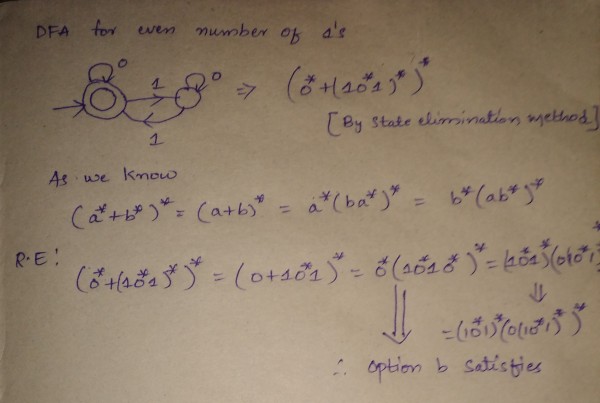 DFA for even number of 1's
0 1 0 ⇒ (0*+(10*1)*)*
1 [By State elimination method]
As we know
(a*+b*)* = (a+b)* = a*(ba*)* = b*(ab*)*
R.E: (0*+(10*1)*)* = (0+10*1)* = 0*(10*10*)* = (10*1)*(0(10*1)
= (10*1)*(0(10*1)*)*
∴ option b satisfies